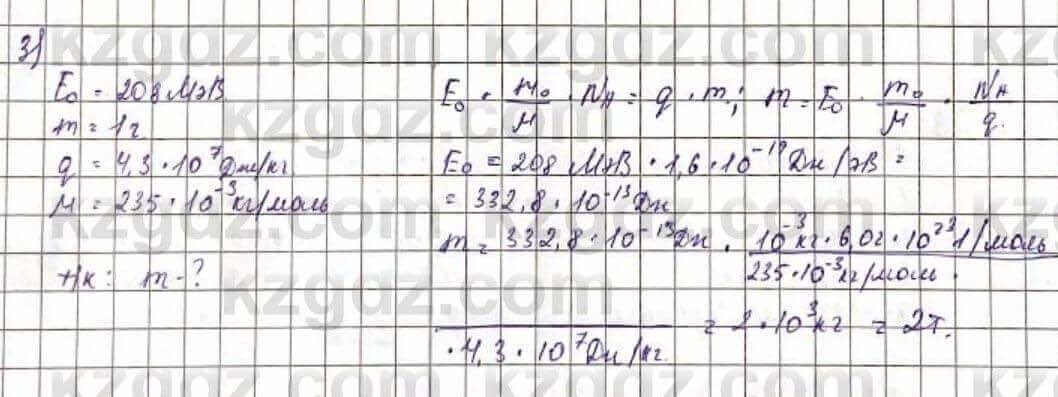 3)
E₀ = 208 МэВ
m = 1г
q = 4,3 · 10⁷ Дж/кг
M = 235 · 10⁻³ кг/моль
Т/к: m - ?
E₀ · m₀/M · Nₐ = q · m; m = E₀ · m₀/M · Nₐ/q.
E₀ = 208 МэВ · 1,6 · 10⁻¹⁹ Дж/эВ =
= 332,8 · 10⁻¹³ Дж
m = 332,8 · 10⁻¹³ Дж · 10⁻³ кг · 6,02 · 10²³ 1/моль
235 · 10⁻³ кг/моль ·
· 4,3 · 10⁷ Дж/кг.
= 2 · 10³ кг = 2т.
kzgdz.com